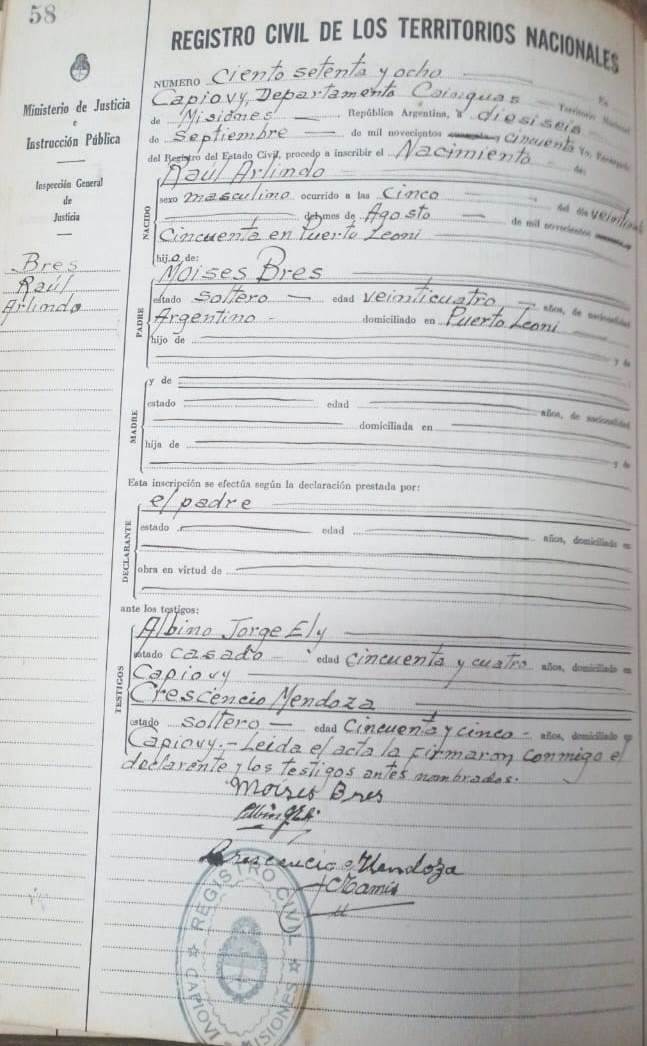 58
REGISTRO CIVIL DE LOS TERRITORIOS NACIONALES
Ministerio de Justicia
e
Instrucción Pública
Inspección General
de
Justicia
Bres
Raúl
Arlindo
NUMERO Ciento setenta y ocho En
Capiovy, Departamento Cainguas Territorio Nacional
de Misiones República Argentina, a diesiseis
de Septiembre de mil novecientos cincuenta Yo, Encargado
del Registro del Estado Civil, procedo a inscribir el Nacimiento de:
NACIDO
Raúl Arlindo
sexo masculino ocurrido a las Cinco del día veintiuno
del mes de Agosto de mil novecientos
Cincuenta en Puerto Leoni
hijo de:
PADRE
Moises Bres
estado soltero edad veinticuatro años, de nacionalidad
Argentino domiciliado en Puerto Leoni
hijo de
y de
MADRE
y de
estado edad años, de nacionalidad
domiciliada en
hija de
y de
Esta inscripción se efectúa según la declaración prestada por:
DECLARANTE
el padre
estado edad años, domiciliado en
obra en virtud de
ante los testigos:
TESTIGOS
Albino Jorge Ely
estado casado edad cincuenta y cuatro años, domiciliado en
Capiovy
Crescencio Mendoza
estado soltero edad Cincuenta y cinco años, domiciliado en
Capiovy.- Leida el acta la firmaron conmigo el
declarente y los testigos antes nombrados.
Moises Bres
Crescencio Mendoza
REGISTRO CIVIL
CAPIOVI MISIONES